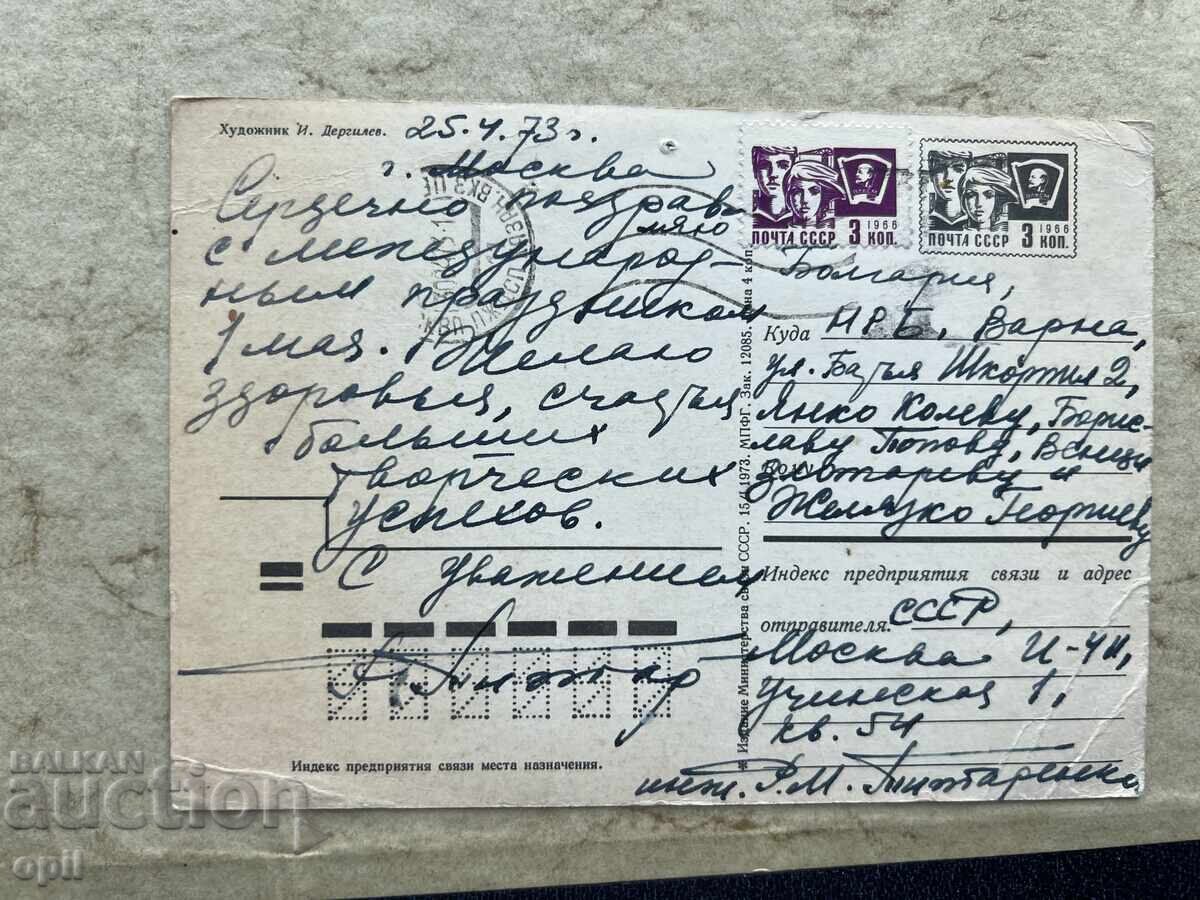 Художник И. Дергилев.
25.4.73г.
г. Москва
Сердечно поздрав
ляю
с международ-
ным праздником
1 мая. Желаю
здоровья, счастья
больших
творческих
успехов.
С уважением
Индекс предприятия связи места назначения.
* Издание Министерства связи СССР. 15/I 1973. МПФГ. Зак. 12085. Цена 4 коп.
ПОЧТА СССР 3 КОП. 1966
ПОЧТА СССР 3 КОП. 1966
Болгария,
Куда НРБ, Варна,
ул. Бачья 2,
Янко Колеву, Борис-
лаву Попову, Венци
Кому Златареву и
Желязко Георгиеву
Индекс предприятия связи и адрес
отправителя. СССР,
Москва И-411,
Учинская 1,
кв. 54
инж. Р.М.
BALKAN
auction
opil